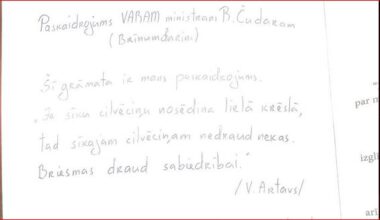 Paskaidrojums VARAM ministram R. Čudaram
(Brīnumdarim)
Šī grāmata ir mans paskaidrojums.
"Ja sīku cilvēciņu nosēdina lielā krēslā,
tad sīkajam cilvēciņam nedraud nekas.
Briesmas draud sabiedrībai."
/V. Artavs/
par n
izglī
arī